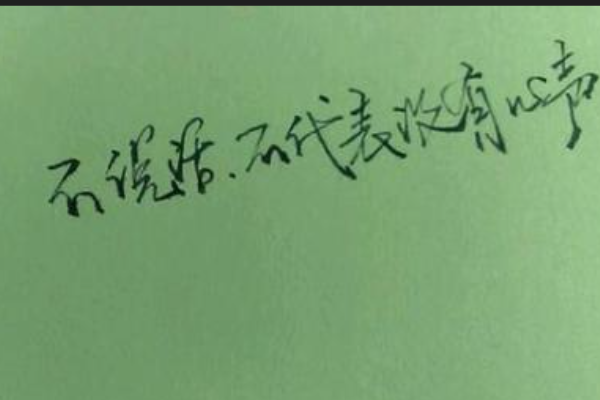 不说话.不代表没有心声